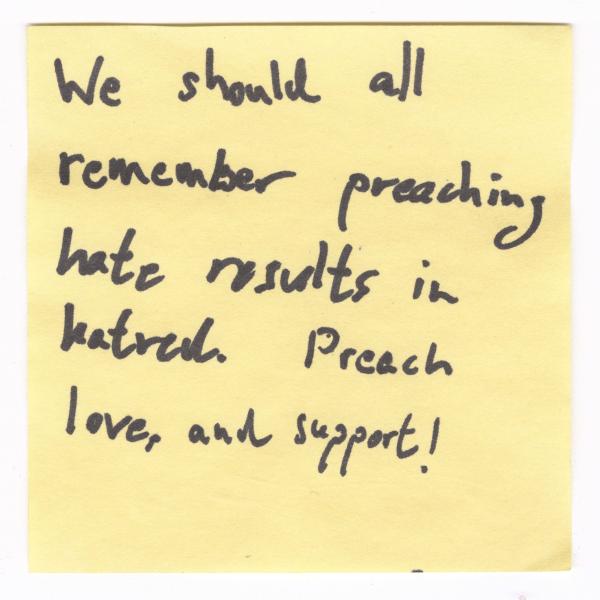 We should all
remember preaching
hate results in
hatred. Preach
love, and support!